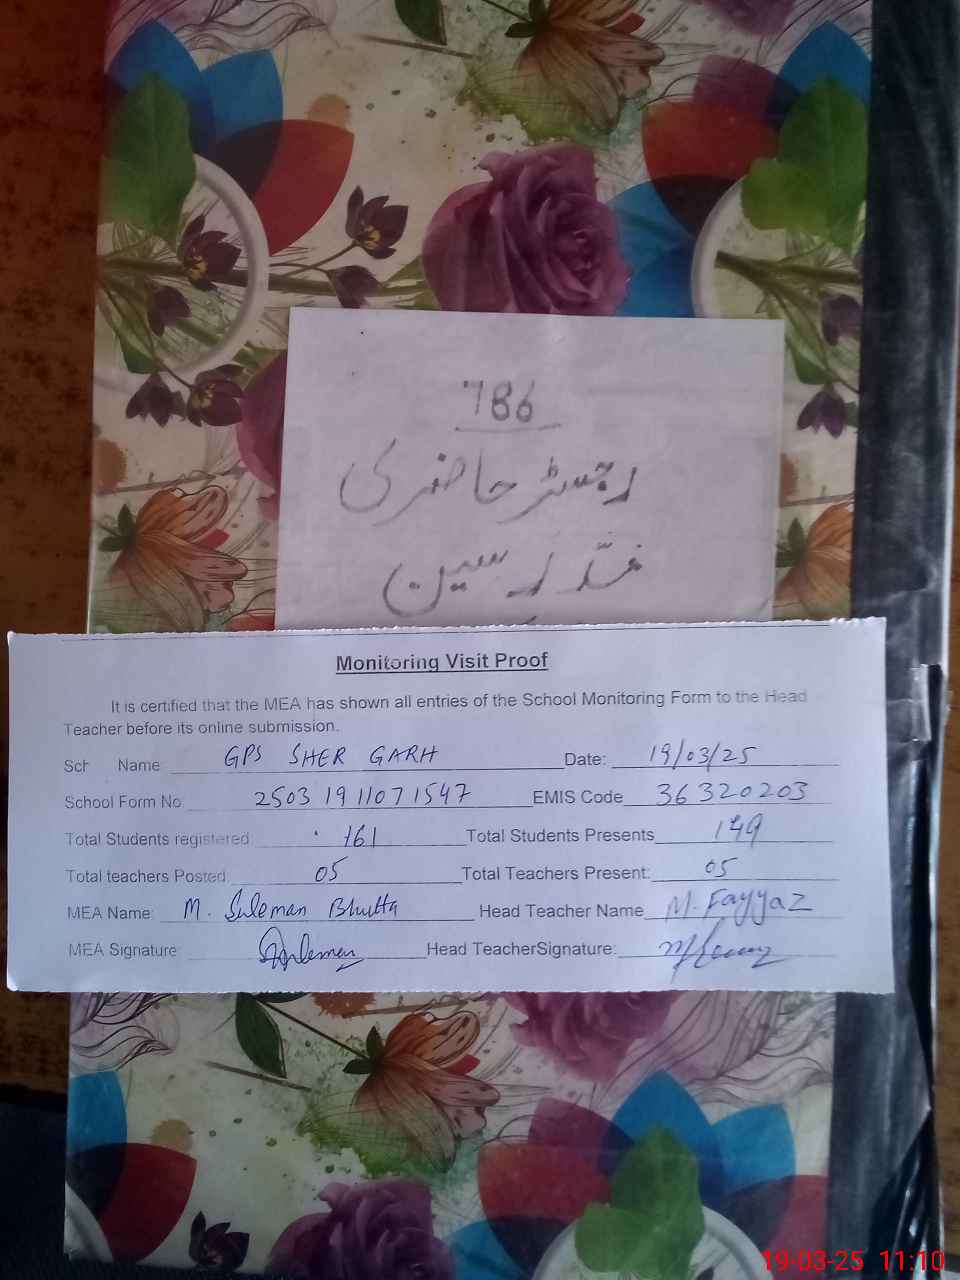 786
رجسٹر حاضری
مدرسین
Monitoring Visit Proof
It is certified that the MEA has shown all entries of the School Monitoring Form to the Head
Teacher before its online submission.
Sch Name: GPS SHER GARH Date: 19/03/25
School Form No. 2503 1911071547 EMIS Code 36320203
Total Students registered: 161 Total Students Presents 149
Total teachers Posted: 05 Total Teachers Present: 05
MEA Name: M. Suleman Bhutta Head Teacher Name M. Fayyaz
MEA Signature: Suleman Head TeacherSignature:
19-03-25 11:10